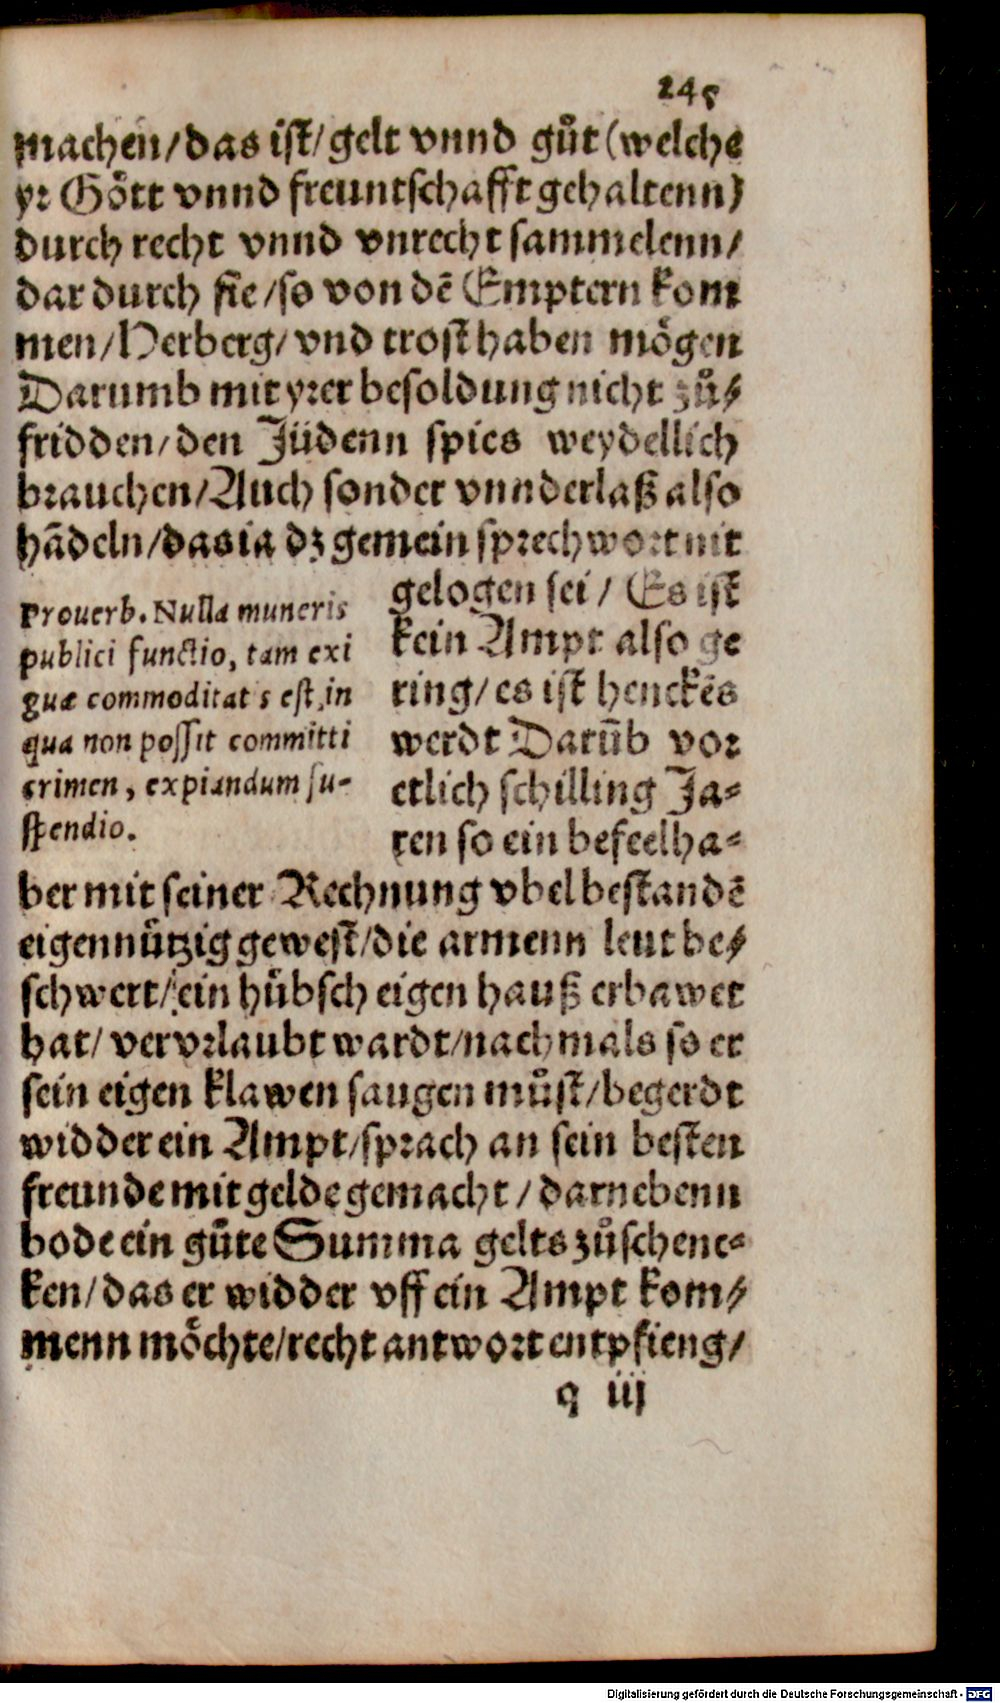 245
machen/das ist/gelt vnnd gůt (welche
yr Gött vnnd freuntschafft gehaltenn)
durch recht vnnd vnrecht sammelenn/
dar durch sie/so von dē Emptern kom
men/Herberg/vnd trost haben mögen
Darumb mit yrer besoldung nicht zů/
fridden/den Jüdenn spies weydellich
brauchen/Auch sonder vnnderlaß also
hādeln/das ia dz gemein sprechwort nit
gelogen sei/ Es ist
kein Ampt also ge
ring/es ist henckēs
werdt Darūb vor
etlich schilling Ja-
ren so ein befeelha-
Prouerb. Nulla muneris
publici functio, tam exi
guæ commoditat s est, in
qua non possit committi
crimen, expiandum su-
spendio.
ber mit seiner Rechnung vbel bestandē
eigennützig gewest/die armenn leut be/
schwert/ein hübsch eigen hauß erbawet
hat/vervrlaubt wardt/nachmals so er
sein eigen klawen saugen můst/begerdt
widder ein Ampt/sprach an sein besten
freunde mit gelde gemacht/darnebenn
bode ein gůte Summa gelts zůschenc-
ken/das er widder vff ein Ampt kom/
menn möchte/recht antwort entpfieng/
q iij
Digitalisierung gefördert durch die Deutsche Forschungsgemeinschaft - DFG